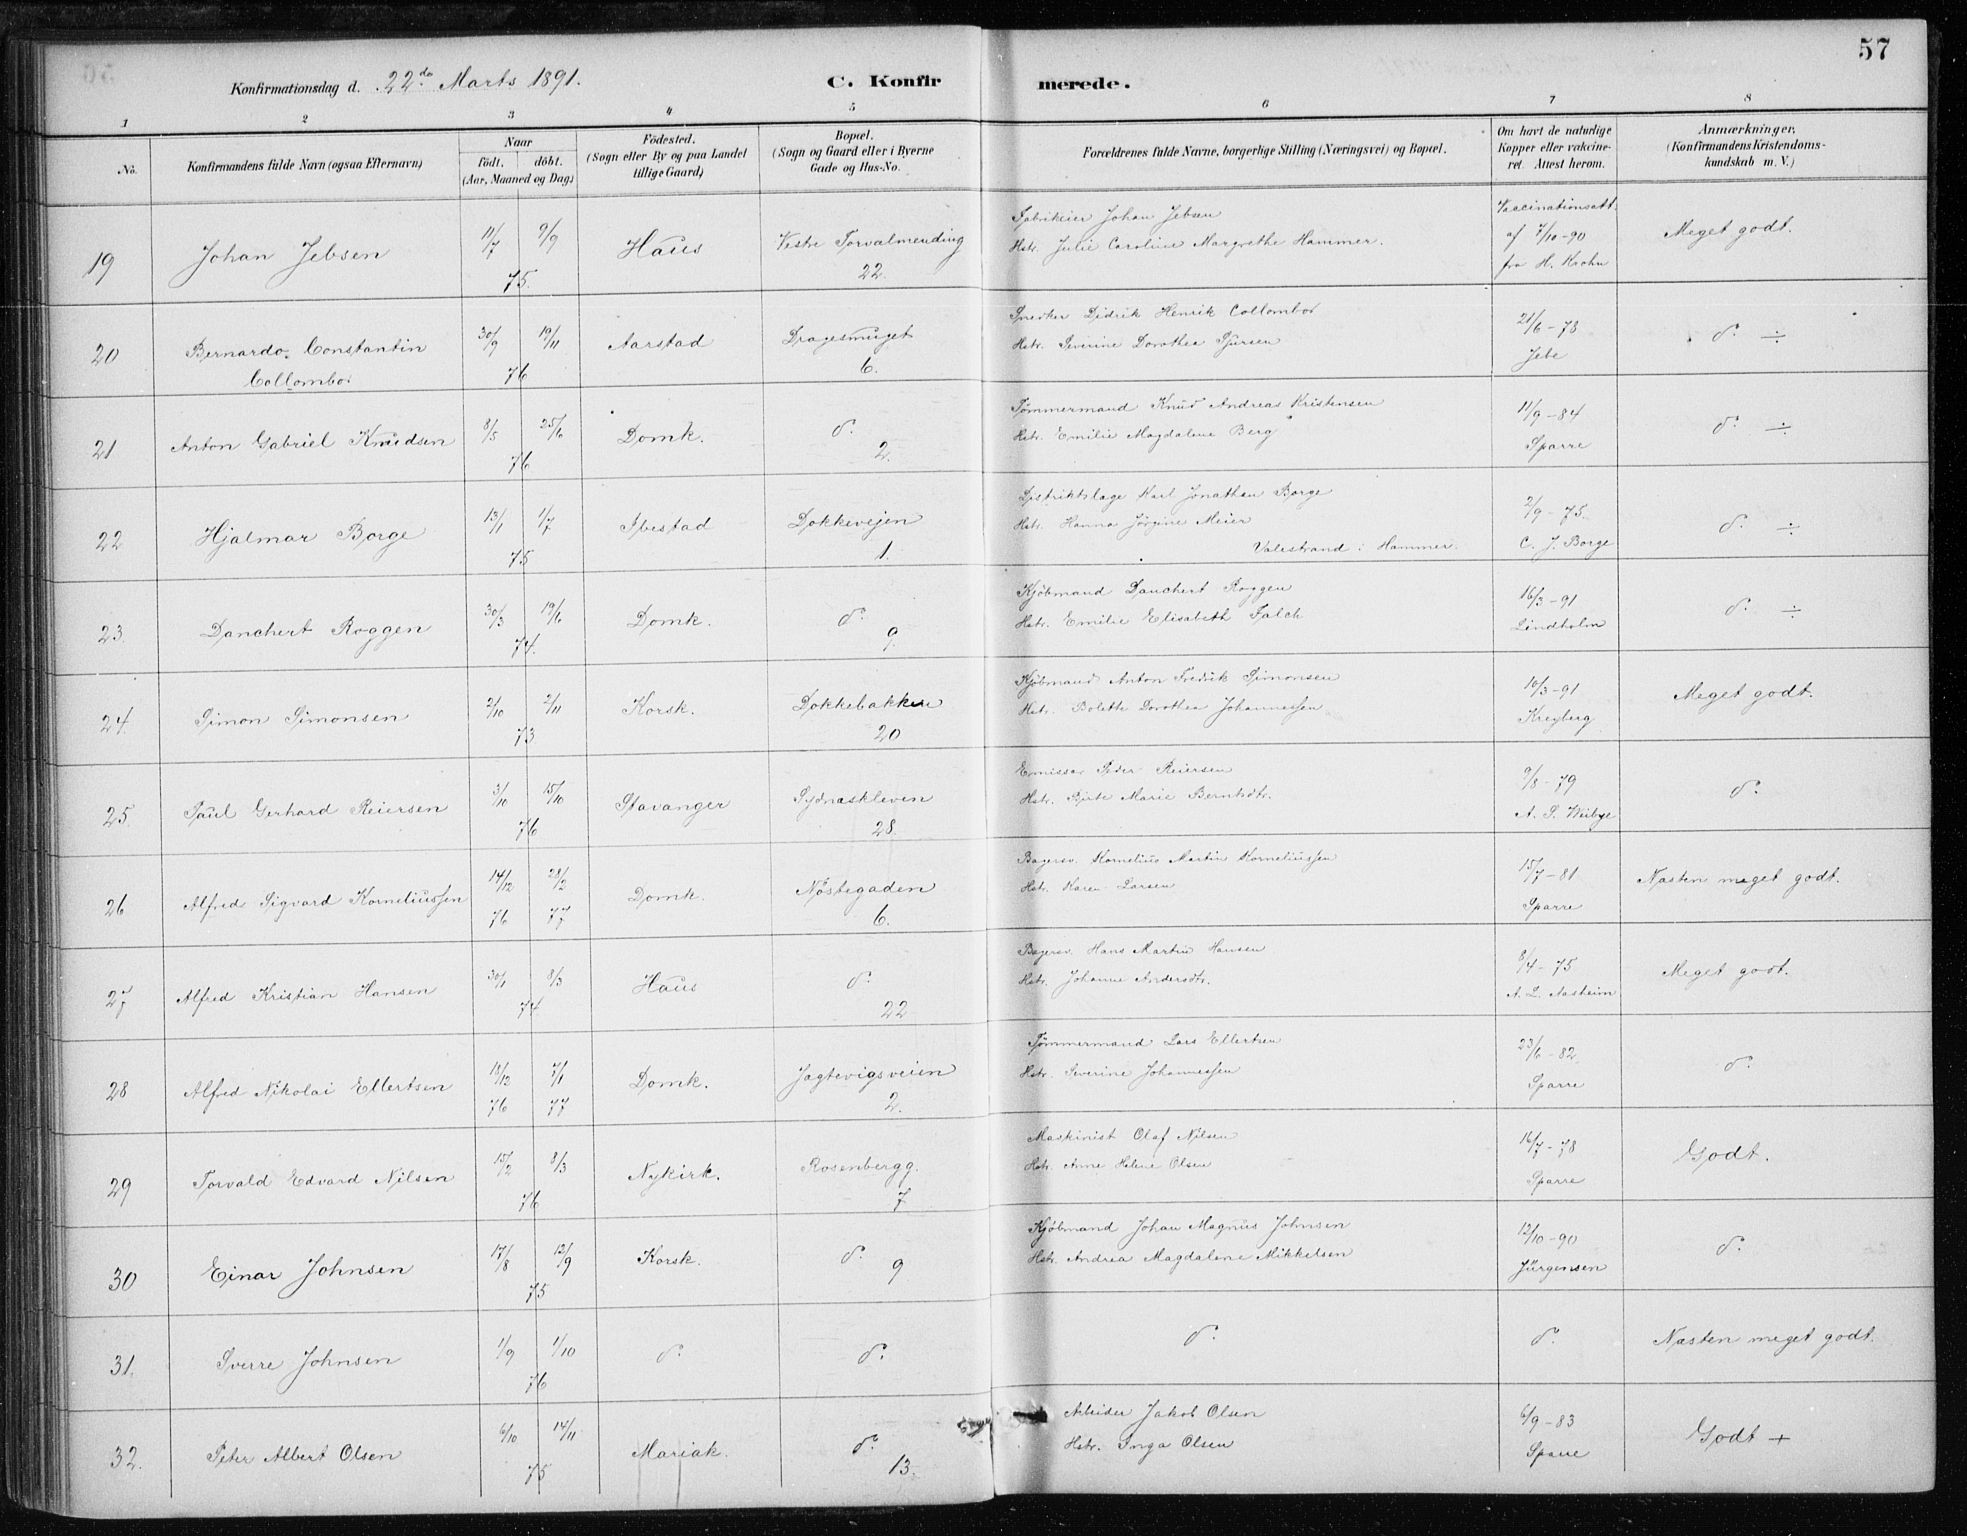 57
Konfirmationsdag d. 22de Marts 1891.
C. Konfirmerede.
1 2 3 4 5 6 7 8
No.
Konfirmandens fulde Navn (ogsaa Efternavn)
Naar
født. døbt.
(Aar, Maaned og Dag)
Fødested.
(Sogn eller By og paa Landet
tillige Gaard)
Bopæl.
(Sogn og Gaard eller i Byerne
Gade og Hus-No.
Forældrenes fulde Navne, borgerlige Stilling (Næringsvei) og Bopæl.
Om havt de naturlige
Kopper eller vakcine-
ret. Attest herom.
Anmærkninger.
(Konfirmandens Kristendoms-
kundskab m. V.)
19 Johan Jebsen 11/7 9/9 75. Haus Vestre Torvalmending 22.
Fabrikeier Johan Jebsen
Hstr. Julie Caroline Margrethe Hammer.
Vaccinationsatt.
af 7/10-90
fra H. Krohn
Meget godt.
20 Bernardo Constantin
Collombor
30/9 19/11 76 Aarstad Dragesmuget 6.
Snedker Didrik Henrik Collombor
Hstr. Severine Dorothea Sjursen
21/6-78
Jebe
do ÷
21 Anton Gabriel Knudsen 8/5 25/6 76 Domk. do 2.
Tømmermand Knud Andreas Kristensen
Hstr. Emilie Magdalene Berg
11/9-84
Sparre
do ÷
22 Hjalmar Borge 13/1 1/7 75 Ibestad Dokkevejen 1.
Distriktslæge Karl Jonathan Borge
Hstr. Hanna Jørgine Meier
Valestrand i Hammer.
2/9-75.
C. J. Borge
do ÷
23. Danchert Roggen 30/3 19/6 74. Domk. do 9.
Kjøbmand Danchert Roggen
Hstr. Emilie Elisabeth Falch
16/3-91
Lindholm
do ÷
24. Simon Simonsen 2/10 2/11 73 Korsk. Dokkebakken 20
Kjøbmand Anton Fredrik Simonsen
Hstr. Bolette Dorothea Johannessen
10/3-91
Kreyberg
Meget godt.
25. Paul Gerhard Reiersen 3/10 15/10 76 Stavanger Sydnæskleven 28.
Emissær Peder Reiersen
Hstr. Birte Marie Berntsdtr.
9/8-79
A. S. Weibye
do
26 Alfred Sigvard Korneliussen 14/12 76 28/2 77 Domk. Nøstegaden 6.
Bagersv. Kornelius Martin Korneliussen
Hstr. Karen Larsen
15/7-81
Sparre
Næsten meget godt.
27 Alfred Kristian Hansen 30/1 8/3 74 Haus do 22
Bagersv. Hans Martin Hansen
Hstr. Johanne Andersdtr.
8/4-75
A. L. Aasheim
Meget godt.
28 Alfred Nikolai Ellertsen 18/12 76 7/1 77 Domk. Jagtevigsveien 2.
Tømmermand Lars Ellertsen
Hstr. Severine Johannessen
23/6-82.
Sparre
do
29 Torvald Edvard Nilsen 15/2 8/3 76 Nykirk. Rosenbergg. 7
Maskinist Olaf Nilsen
Hstr. Anne Helene Olsen
16/7-78
Sparre
Godt.
30 Einar Johnsen 17/8 12/9 75 Korsk. do 9
Kjøbmand Johan Magnus Johnsen
Hstr. Andrea Magdalene Mikkelsen
12/10-90
Jürgensen
do
31. Sverre Johnsen 1/9 1/10 76 do do do do Næsten meget godt.
32. Peter Albert Olsen 6/10 14/11 75 Mariak. do 13.
Arbeider Jakob Olsen
Hstr. Inga Olsen
6/9-83
Sparre
Godt +